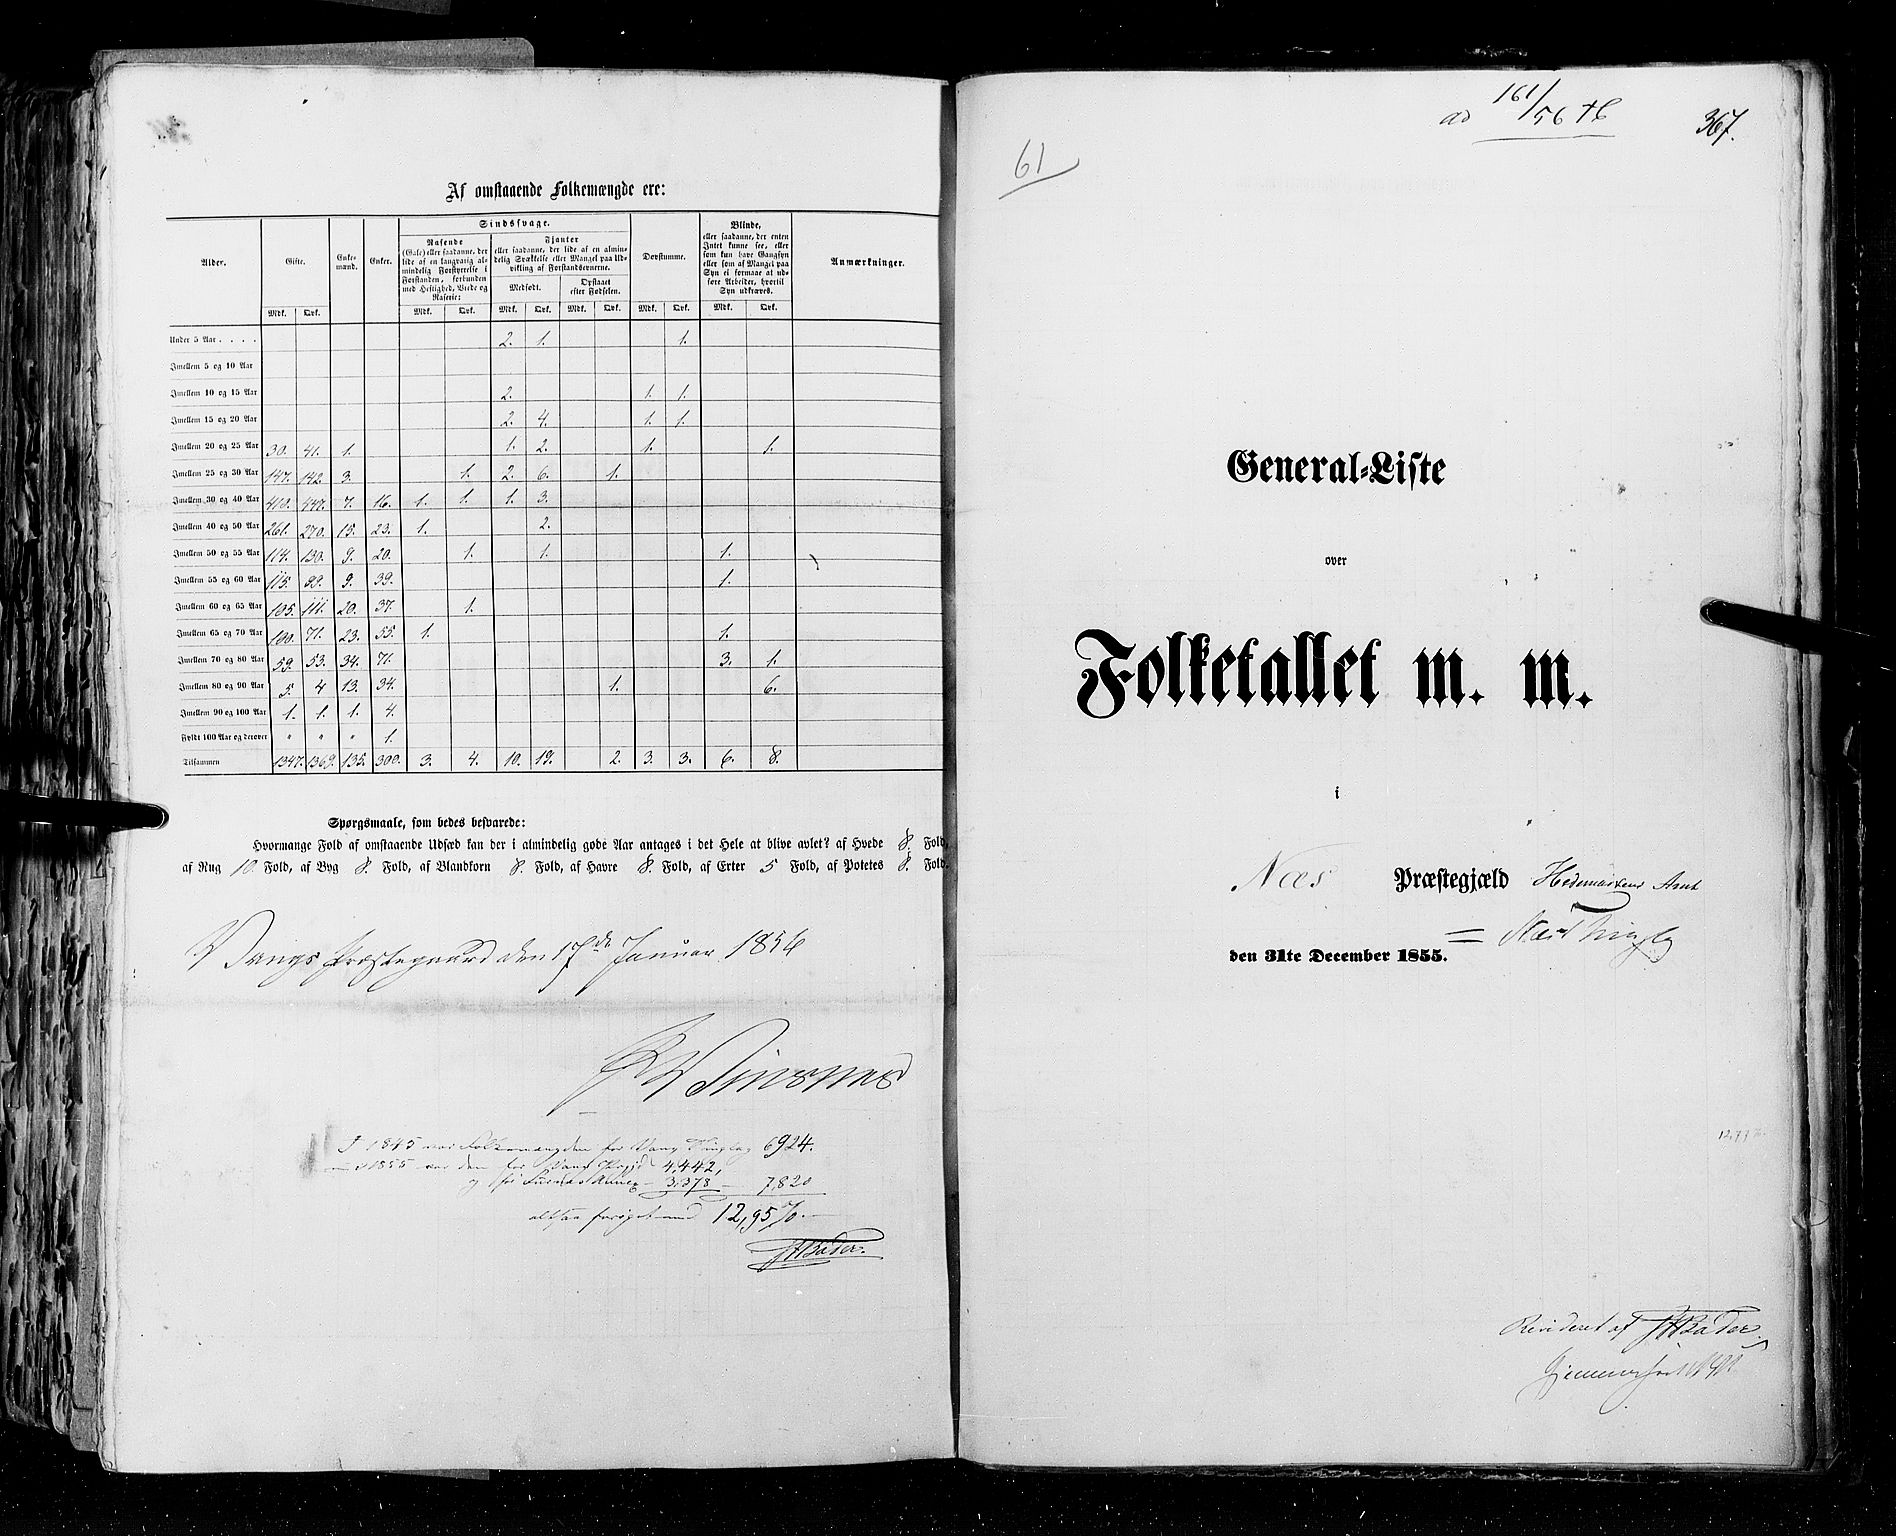 Af omstaaende Folkemængde ere:
Alder. Gifte. Enkemænd. Enker. Sindssvage. Døvstumme. Blinde, Anmærkninger.
Rasende (Gale) eller saadanne, der lide af en langvarig almindelig Forstyrrelse i Forstanden, forbunden med Heftighed, Vrede og Raserie:
Fjanter eller saadanne, der lide af en almindelig Svækkelse eller Mangel paa Udvikling af Forstandsevnerne.
Medfødt. Opstaaet efter Fødselen.
eller saadanne, der enten Intet kunne see, eller som kun have Gangsyn eller som af Mangel paa Syn ei formaae at udføre Arbeider, hvortil Syn udkræves.
Mdk. Qvk. Mdk. Qvk. Mdk. Qvk. Mdk. Qvk. Mdk. Qvk. Mdk. Qvk.
Under 5 Aar . . . . 2. 1. 1.
Imellem 5 og 10 Aar
Imellem 10 og 15 Aar 2. 1. 1.
Imellem 15 og 20 Aar 2. 4. 1. 1.
Imellem 20 og 25 Aar 30. 41. 1. 1. 2. 1. 1.
Imellem 25 og 30 Aar 147. 142. 3. 1. 2. 6. 1.
Imellem 30 og 40 Aar 410. 447. 7. 16. 1. 1. 1. 3.
Imellem 40 og 50 Aar 261. 270. 15. 23. 1. 2.
Imellem 50 og 55 Aar 114. 130. 9. 20. 1. 1. 1.
Imellem 55 og 60 Aar 115. 99. 9. 39. 1.
Imellem 60 og 65 Aar 105. 111. 20. 37. 1.
Imellem 65 og 70 Aar 100. 71. 23. 55. 1. 1.
Imellem 70 og 80 Aar 59. 53. 34. 71. 3. 1.
Imellem 80 og 90 Aar 5. 4 13. 34. 1. 6.
Imellem 90 og 100 Aar 1. 1. 1. 4.
Fyldt 100 Aar og derover " " " 1.
Tilsammen 1347. 1369. 135. 300. 3. 4. 10. 19. 2. 3. 3. 6. 8.
Spørgsmaale, som bedes besvarede:
Hvormange Fold af omstaaende Udsæd kan der i almindelig gode Aar antages i det Hele at blive avlet? af Hvede 8. Fold,
af Rug 10. Fold, af Byg 8. Fold, af Blandkorn 8. Fold, af Havre 8. Fold, af Erter 5 Fold, af Potetes 8. Fold.
Vangs Præstegaard den 17de Januar 1856
I 1845 var Folkemængden for Vang Tinglag 6924.
1855 var den for Vang Prgjd 4,442,
og for Annex 3,378 7,820
altsaa forøget med 12,95%
ad 161/56
367.
61
General-Liste
over
Folketallet m. m.
i
Næs Præstegjæld Hedemarkens Amt
= Næs Thinglag
den 31te December 1855.
Revideret af